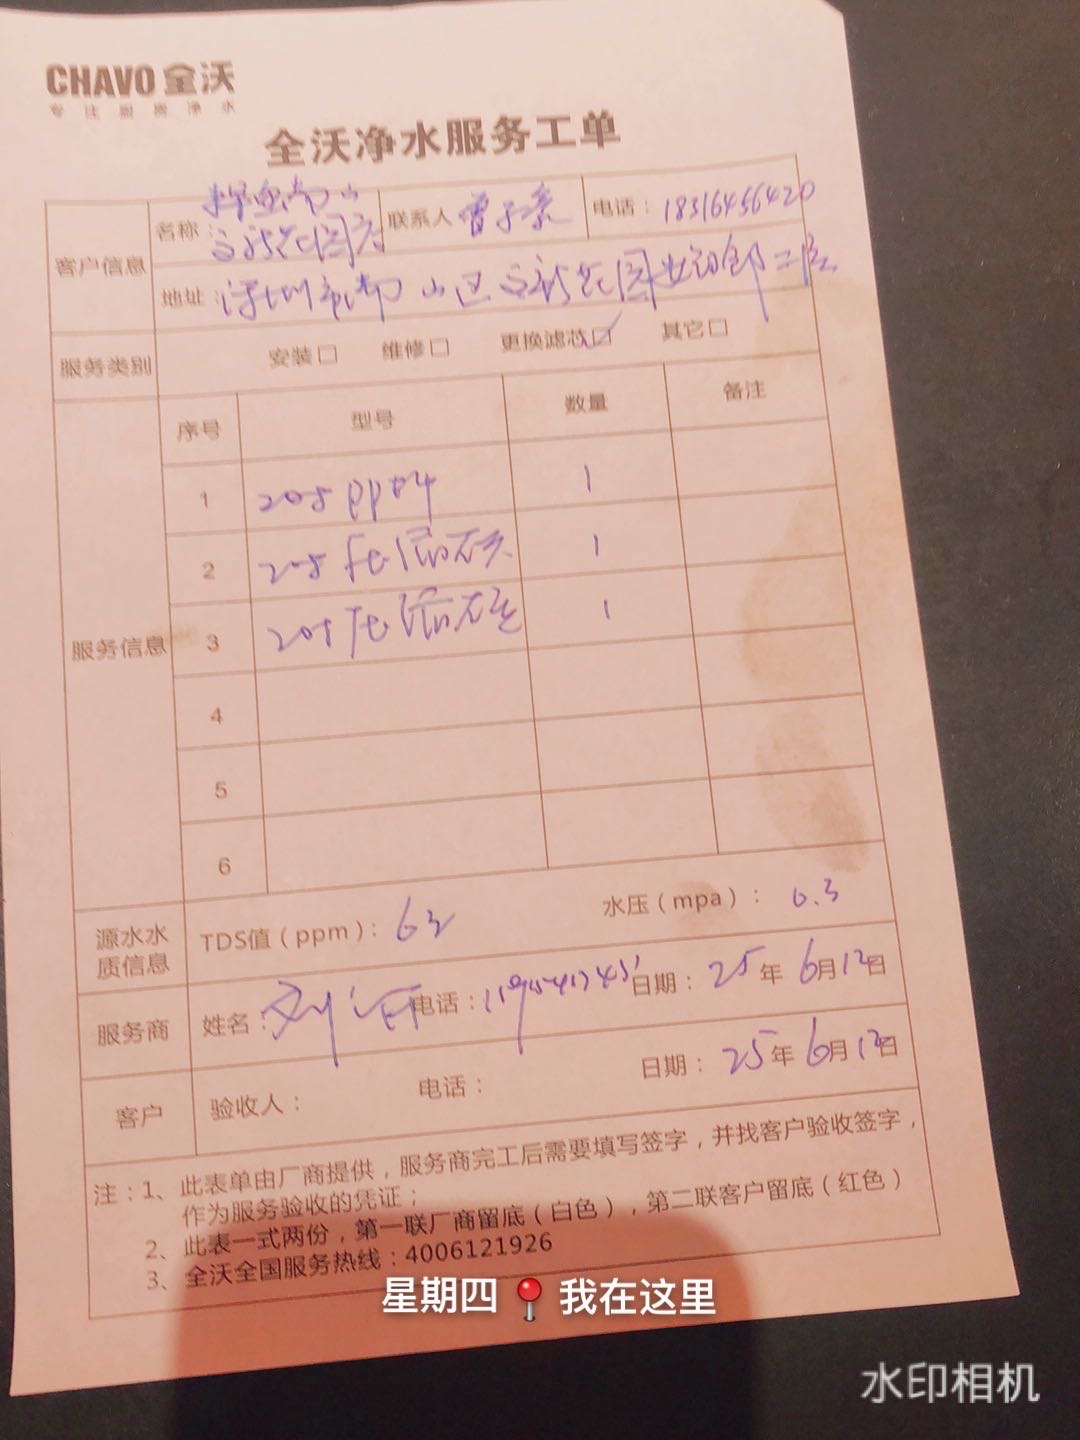 CHAVO 全沃
专注厨房净水
全沃净水服务工单
客户信息 名称： 南山 花园店 联系人 曾子 电话：18316456420
地址：深圳市南山区 花园 二层
服务类别 安装□ 维修□ 更换滤芯☑ 其它□
服务信息 序号 型号 数量 备注
1 208 PP棉 1
2 208 1
3 208 1
4
5
6
源水水质信息 TDS值（ppm）：63 水压（mpa）：0.3
服务商 姓名：刘 电话： 日期：25年6月12日
客户 验收人： 电话： 日期：25年6月12日
注：1、此表单由厂商提供，服务商完工后需要填写签字，并找客户验收签字，
作为服务验收的凭证；
2、此表一式两份，第一联厂商留底（白色），第二联客户留底（红色）
3、全沃全国服务热线：4006121926
星期四📍我在这里
水印相机